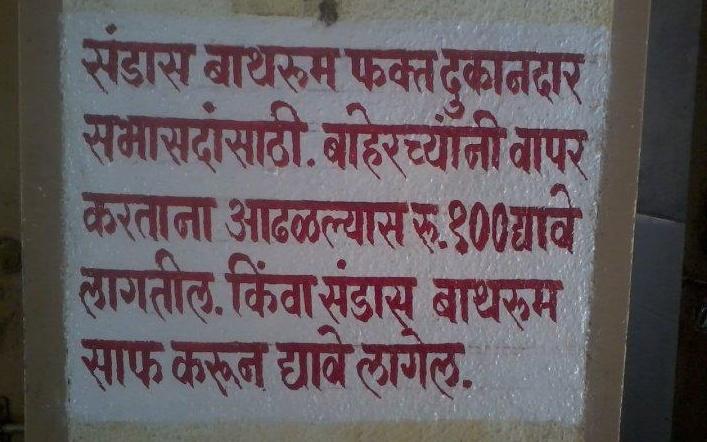 संडास बाथरूम फक्त दुकानदार
सभासदांसाठी. बाहेरच्यांनी वापर
करताना आढळल्यास रू.१००द्यावे
लागतील. किंवा संडास बाथरूम
साफ करून द्यावे लागेल.